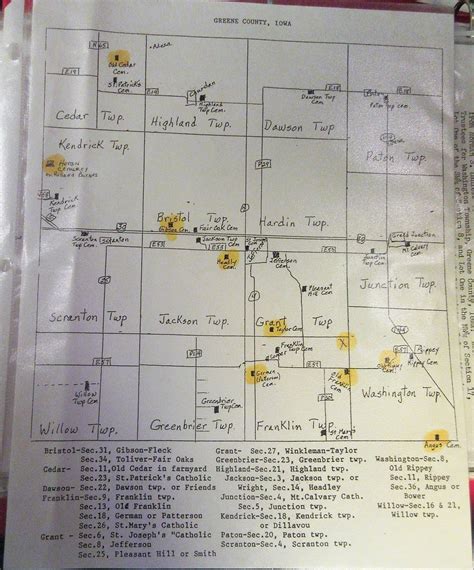 GREENE COUNTY, IOWA
Old Cedar
Cem.
St. Patrick's
Cem.
E19
Highland
Twp Cem.
Dawson Twp
Cem.
E18
Paton Twp Cem.
Cedar Twp.
Highland Twp.
Dawson Twp.
Paton Twp.
Kendrick Twp.
P29
Kendrick
Twp Cem.
Bristol Twp.
Gibson Cem.
Fair Oak Cem
Hardin Twp.
30
Scranton
Cem.
Scranton
E53
Jackson Twp
Cem.
E53
Headly
Cem.
Jefferson
Cem.
Grand Junction
Mt. Calvary
Cem.
Junction
Twp
Cem.
Pleasant
Hill Cem
Junction Twp.
Scranton Twp
Jackson Twp.
4
Grant Twp
Taylor Cem
144
P14
Franklin Twp
Cem.
X
E57
Rippey
Old Rippey
Cem.
Rippey Cem
E57
German
(Patterson)
Cem.
Old
Franklin
Cem
Washington Twp.
Willow
Twp Cem
Greenbrier
Twp Cem
Willow Twp.
Greenbrier Twp.
Franklin Twp.
St. Mary's
Cem
Angus Cem
Bristol-Sec.31, Gibson-Fleck
Sec.34, Toliver-Fair Oaks
Cedar- Sec.11,Old Cedar in farmyard
Sec.23, St.Patrick's Catholic
Dawson-Sec.22, Dawson twp. or Friends
Franklin-Sec.9, Franklin twp.
Sec.13, Old Franklin
Sec.18, German or Patterson
Sec.26, St.Mary's Catholic
Grant - Sec.6, St. Joseph's "Catholic
Sec.8, Jefferson
Sec.25, Pleasant Hill or Smith
Grant- Sec.27, Winkleman-Taylor
Greenbrier-Sec.23, Greenbrier twp.
Highland-Sec.21, Highland twp.
Jackson-Sec.3, Jackson twp. or
Wright, Sec.14, Headley
Junction-Sec.4, Mt.Calvary Cath.
Sec.5, Junction twp.
Kendrick-Sec.18, Kendrick twp.
or Dillavou
Paton-Sec.20, Paton twp.
Scranton-Sec.4, Scranton twp.
Washington-Sec.8,
Old Rippey
Sec.11, Rippey
Sec.36, Angus or
Bower
Willow-Sec.16 & 21,
Willow twp.